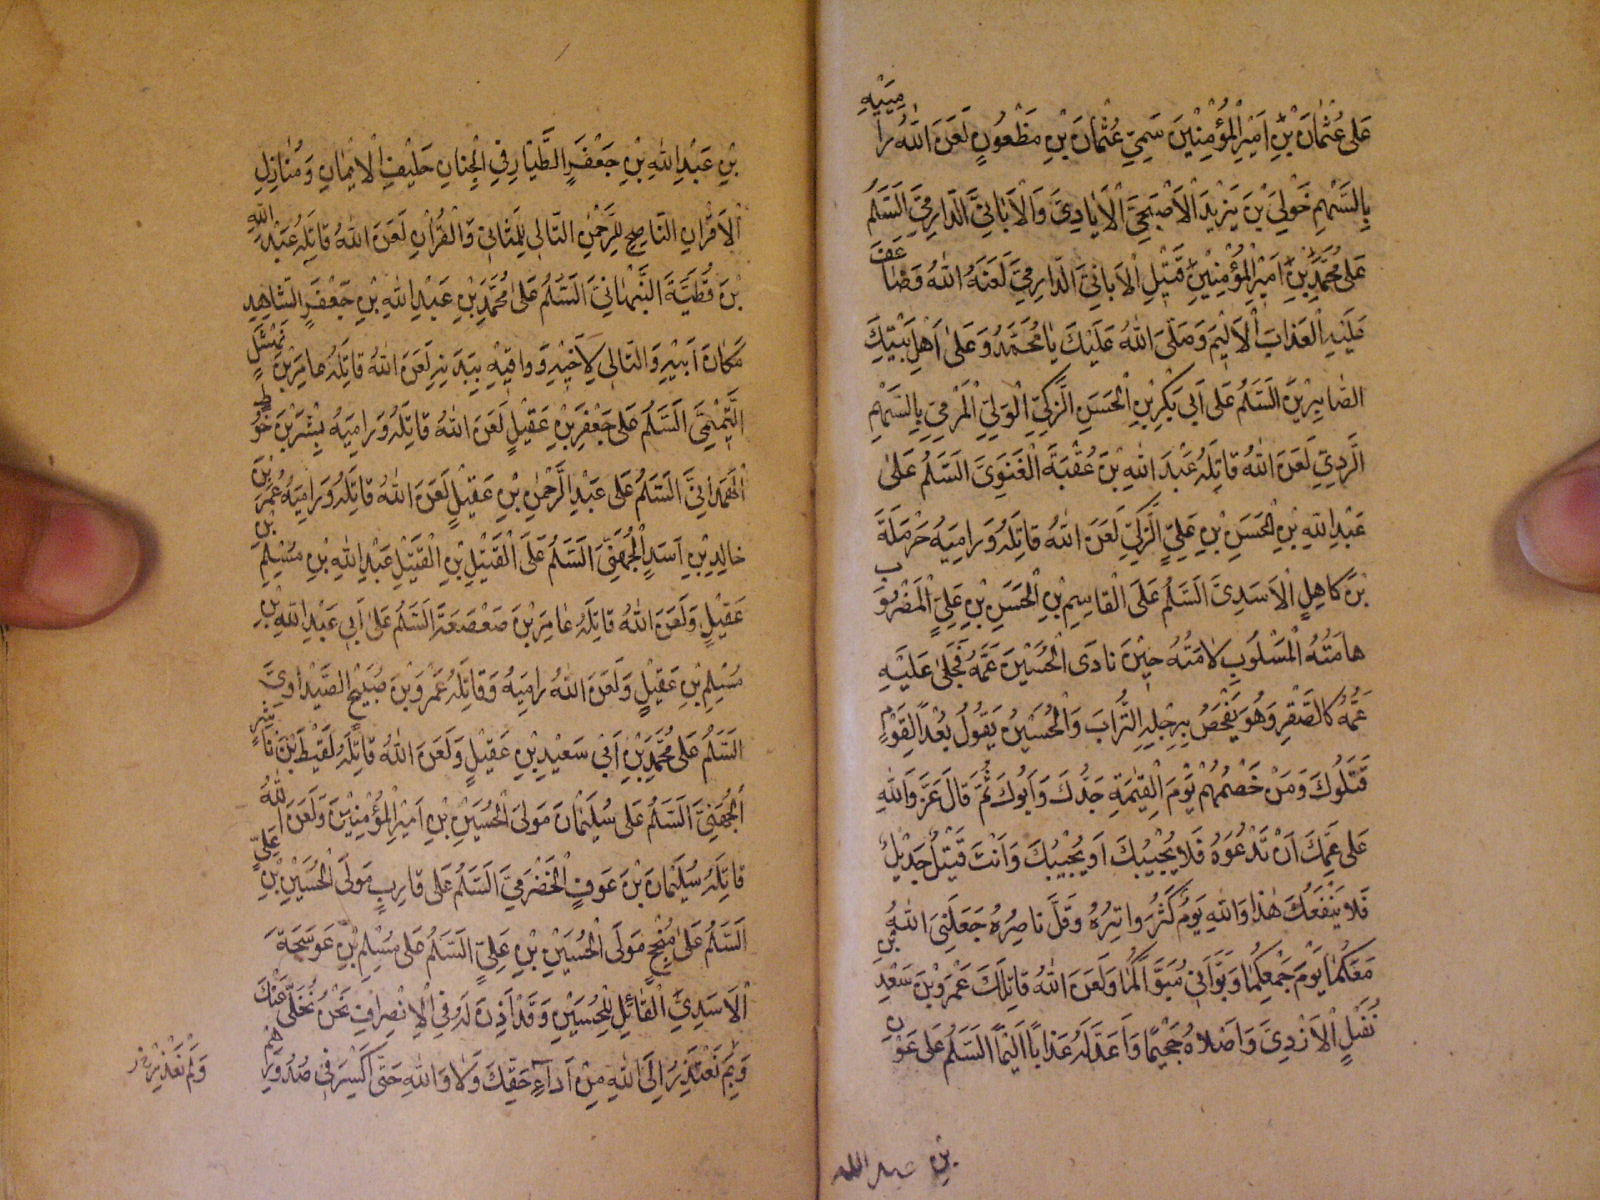 عَلى عُثْمانَ بْنِ اَمِيْرِ الْمُؤْمِنِيْنَ سَمِيِّ عُثْمانَ بْنِ مَظْعُوْنٍ لَعَنَ اللهُ رامِيَهُ
بِالسَّهْمِ خَوْلِيَّ بْنَ يَزِيْدَ الْاَصْبَحِيَّ الْاَيادِيَّ وَالْاَبانِيَّ الدّارِمِيَّ السَّلامُ
عَلى مُحَمَّدِ بْنِ اَمِيْرِ الْمُؤْمِنِيْنَ قَتِيْلِ الْاَبانِيِّ الدّارِمِيِّ لَعَنَهُ اللهُ وَضاعَفَ
عَلَيْهِ الْعَذابَ الْاَلِيْمَ وَصَلَّى اللهُ عَلَيْكَ يا مُحَمَّدُ وَعَلى اَهْلِ بَيْتِكَ
الصّابِرِيْنَ اَلسَّلامُ عَلى اَبي بَكْرِ بْنِ الْحَسَنِ الزَّكِيِّ الْوَلِيِّ الْمَرْمِيِّ بِالسَّهْمِ
الرَّدِيِّ لَعَنَ اللهُ قاتِلَهُ عَبْدَ اللهِ بْنَ عُقْبَةَ الْغَنَوِيَّ اَلسَّلامُ عَلى
عَبْدِ اللهِ بْنِ الْحَسَنِ بْنِ عَلِيٍّ الزَّكِيِّ لَعَنَ اللهُ قاتِلَهُ وَرامِيَهُ حَرْمَلَةَ
بْنَ كاهِلٍ الْاَسَدِيَّ اَلسَّلامُ عَلَى الْقاسِمِ بْنِ الْحَسَنِ بْنِ عَلِيٍّ الْمَضْرُوْبِ
هامَتُهُ الْمَسْلُوْبِ لامَتُهُ حِيْنَ نادَى الْحُسَيْنَ عَمَّهُ فَجَلّى عَلَيْهِ
عَمُّهُ كَالصَّقْرِ وَهُوَ يَفْحَصُ بِرِجْلِهِ التُّرابَ وَالْحُسَيْنُ يَقُوْلُ بُعْدًا لِقَوْمٍ
قَتَلُوْكَ وَمَنْ خَصْمُهُمْ يَوْمَ الْقِيٰمَةِ جَدُّكَ وَاَبُوْكَ ثُمَّ قالَ عَزَّ وَاللهِ
عَلى عَمِّكَ اَنْ تَدْعُوَهُ فَلا يُجِيْبَكَ اَوْ يُجِيْبَكَ وَاَنْتَ قَتِيْلٌ جَدِيْلٌ
فَلا يَنْفَعَكَ هٰذا وَاللهِ يَوْمٌ كَثُرَ واتِرُهُ وَقَلَّ ناصِرُهُ جَعَلَنِيَ اللهُ
مَعَكُما يَوْمَ جَمْعِكُما وَبَوَّاَنِيْ مُبَوَّاَكُما وَلَعَنَ اللهُ قاتِلَكَ عَمْرَو بْنَ سَعْدِ بْنِ
نُفَيْلٍ الْاَزْدِيَّ وَاَصْلاهُ جَحِيْمًا وَاَعَدَّ لَهُ عَذابًا اَلِيْمًا اَلسَّلامُ عَلى عَوْنِ
بن عبد الله
بْنِ عَبْدِ اللهِ بْنِ جَعْفَرٍ الطَّيّارِ فِي الْجِنانِ حَلِيْفِ الْاِيْمانِ وَمُنازِلِ
الْاَقْرانِ النّاصِحِ لِلرَّحْمٰنِ التّالِيْ لِلْمَثانِيْ وَالْقُرْاٰنِ لَعَنَ اللهُ قاتِلَهُ عَبْدَ اللهِ
بْنَ قُطَيَّةَ النَّبْهانِيَّ اَلسَّلامُ عَلى مُحَمَّدِ بْنِ عَبْدِ اللهِ بْنِ جَعْفَرٍ الشّاهِدِ
مَكانَ اَبِيْهِ وَالتّالِيْ لِاَخِيْهِ وَواقِيْهِ بِبَدَنِهِ لَعَنَ اللهُ قاتِلَهُ عامِرَ بْنَ نَهْشَلٍ
التَّمِيْمِيَّ اَلسَّلامُ عَلى جَعْفَرِ بْنِ عَقِيْلٍ لَعَنَ اللهُ قاتِلَهُ وَرامِيَهُ بِشْرَ بْنَ خَوْطٍ
الْهَمْدانِيَّ اَلسَّلامُ عَلى عَبْدِ الرَّحْمٰنِ بْنِ عَقِيْلٍ لَعَنَ اللهُ قاتِلَهُ وَرامِيَهُ عُمَرَ بْنَ
خالِدِ بْنِ اَسَدٍ الْجُهَنِيَّ اَلسَّلامُ عَلَى الْقَتِيْلِ بْنِ الْقَتِيْلِ عَبْدِ اللهِ بْنِ مُسْلِمِ بْنِ
عَقِيْلٍ وَلَعَنَ اللهُ قاتِلَهُ عامِرَ بْنَ صَعْصَعَةَ اَلسَّلامُ عَلى اَبِيْ عَبْدِ اللهِ بْنِ
مُسْلِمِ بْنِ عَقِيْلٍ وَلَعَنَ اللهُ رامِيَهُ وَقاتِلَهُ عَمْرَو بْنَ صُبَيْحٍ الصَّيْداوِيَّ
اَلسَّلامُ عَلى مُحَمَّدِ بْنِ اَبِيْ سَعِيْدِ بْنِ عَقِيْلٍ وَلَعَنَ اللهُ قاتِلَهُ لَقِيْطَ بْنَ ناشِرٍ
الْجُهَنِيَّ اَلسَّلامُ عَلى سُلَيْمانَ مَوْلَى الْحُسَيْنِ بْنِ اَمِيْرِ الْمُؤْمِنِيْنَ وَلَعَنَ اللهُ
قاتِلَهُ سُلَيْمانَ بْنَ عَوْفٍ الْحَضْرَمِيَّ اَلسَّلامُ عَلى قارِبٍ مَوْلَى الْحُسَيْنِ بْنِ عَلِيٍّ
اَلسَّلامُ عَلى مُنْجِحٍ مَوْلَى الْحُسَيْنِ بْنِ عَلِيٍّ اَلسَّلامُ عَلى مُسْلِمِ بْنِ عَوْسَجَةَ
الْاَسَدِيِّ الْقائِلِ لِلْحُسَيْنِ وَقَدْ اَذِنَ لَهُ فِي الْاِنْصِرافِ نَحْنُ نُخَلِّيْ عَنْكَ
وَبِمَ نَعْتَذِرُ اِلَى اللهِ مِنْ اَداءِ حَقِّكَ وَلا وَاللهِ حَتّى اَكْسِرَ فِيْ صُدُوْرِهِمْ